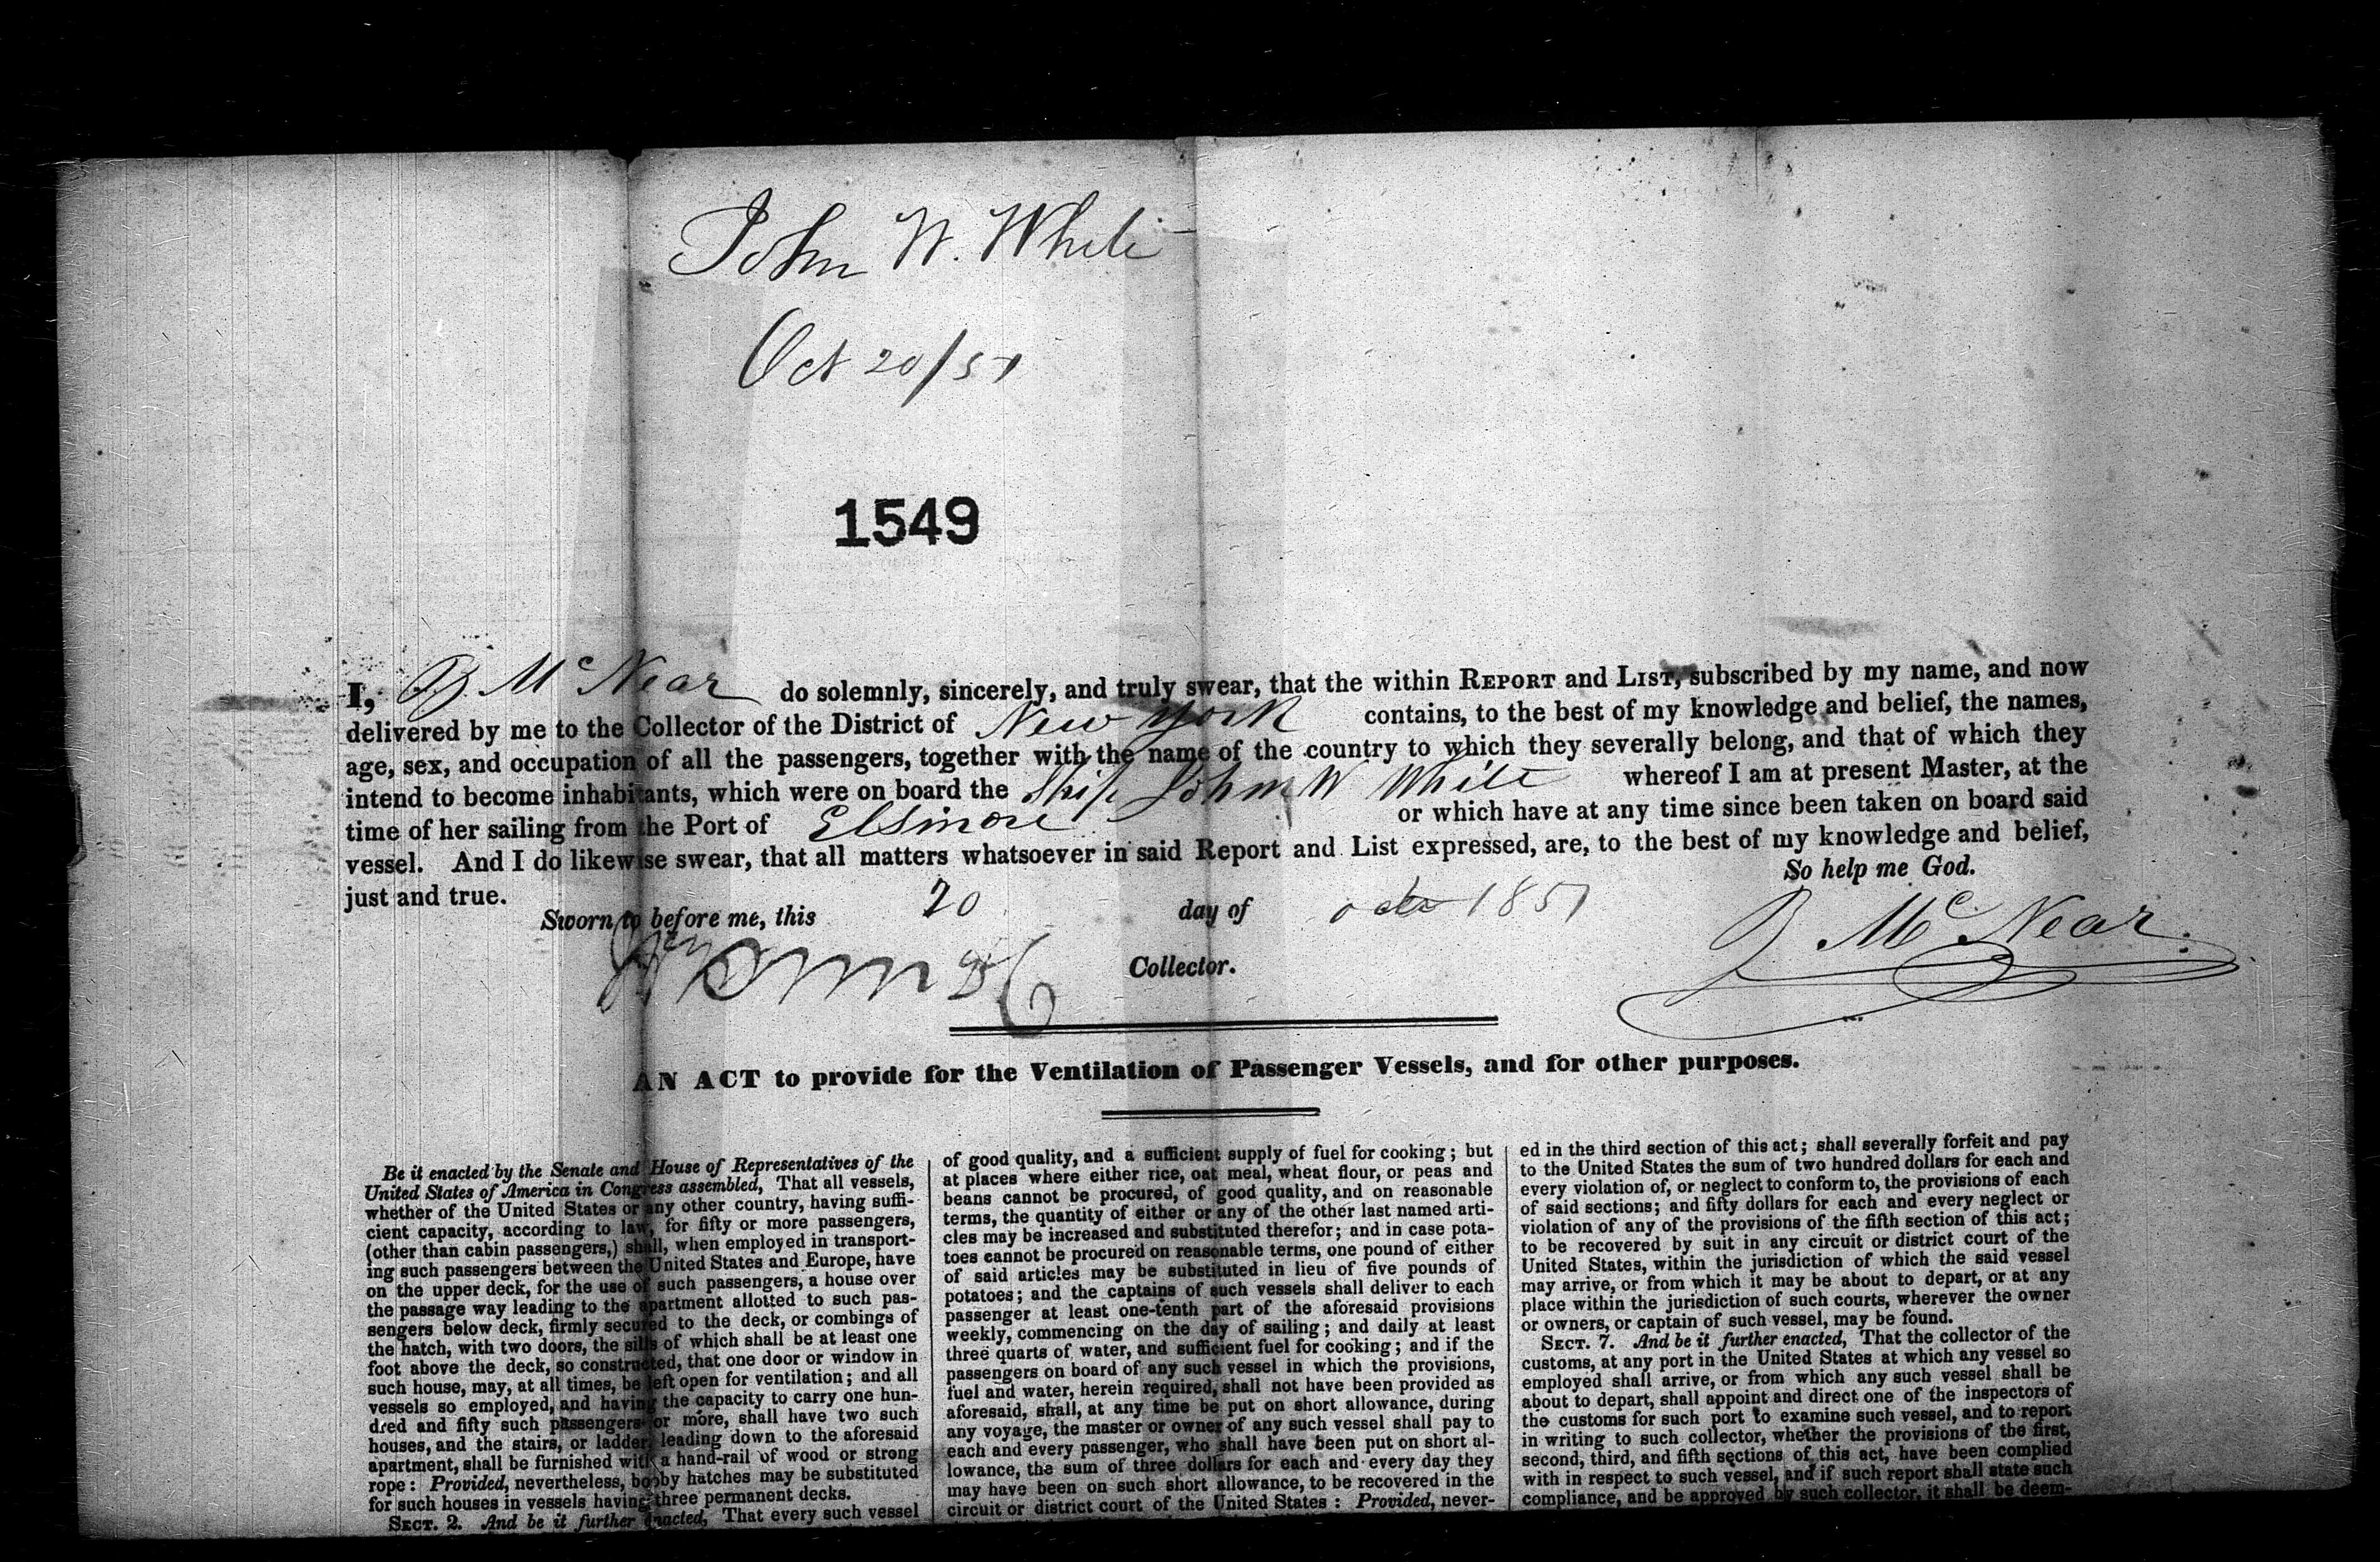 John W. White
Oct 20/51
1549
I, B. McNear do solemnly, sincerely, and truly swear, that the within REPORT and LIST, subscribed by my name, and now
delivered by me to the Collector of the District of New York contains, to the best of my knowledge and belief, the names,
age, sex, and occupation of all the passengers, together with the name of the country to which they severally belong, and that of which they
intend to become inhabitants, which were on board the Ship John W White whereof I am at present Master, at the
time of her sailing from the Port of Elsinore or which have at any time since been taken on board said
vessel. And I do likewise swear, that all matters whatsoever in said Report and List expressed, are, to the best of my knowledge and belief,
just and true. So help me God.
Sworn to before me, this 20 day of oct 1851
B McNear
Collector.
AN ACT to provide for the Ventilation of Passenger Vessels, and for other purposes.
Be it enacted by the Senate and House of Representatives of the
United States of America in Congress assembled, That all vessels,
whether of the United States or any other country, having suffi-
cient capacity, according to law, for fifty or more passengers,
(other than cabin passengers,) shall, when employed in transport-
ing such passengers between the United States and Europe, have
on the upper deck, for the use of such passengers, a house over
the passage way leading to the apartment allotted to such pas-
sengers below deck, firmly secured to the deck, or combings of
the hatch, with two doors, the sills of which shall be at least one
foot above the deck, so constructed, that one door or window in
such house, may, at all times, be left open for ventilation; and all
vessels so employed, and having the capacity to carry one hun-
dred and fifty such passengers or more, shall have two such
houses, and the stairs, or ladder, leading down to the aforesaid
apartment, shall be furnished with a hand-rail of wood or strong
rope: Provided, nevertheless, booby hatches may be substituted
for such houses in vessels having three permanent decks.
SECT. 2. And be it further enacted, That every such vessel
of good quality, and a sufficient supply of fuel for cooking; but
at places where either rice, oat meal, wheat flour, or peas and
beans cannot be procured, of good quality, and on reasonable
terms, the quantity of either or any of the other last named arti-
cles may be increased and substituted therefor; and in case pota-
toes cannot be procured on reasonable terms, one pound of either
of said articles may be substituted in lieu of five pounds of
potatoes; and the captains of such vessels shall deliver to each
passenger at least one-tenth part of the aforesaid provisions
weekly, commencing on the day of sailing; and daily at least
three quarts of water, and sufficient fuel for cooking; and if the
passengers on board of any such vessel in which the provisions,
fuel and water, herein required, shall not have been provided as
aforesaid, shall, at any time be put on short allowance, during
any voyage, the master or owner of any such vessel shall pay to
each and every passenger, who shall have been put on short al-
lowance, the sum of three dollars for each and every day they
may have been on such short allowance, to be recovered in the
circuit or district court of the United States: Provided, never-
ed in the third section of this act; shall severally forfeit and pay
to the United States the sum of two hundred dollars for each and
every violation of, or neglect to conform to, the provisions of each
of said sections; and fifty dollars for each and every neglect or
violation of any of the provisions of the fifth section of this act;
to be recovered by suit in any circuit or district court of the
United States, within the jurisdiction of which the said vessel
may arrive, or from which it may be about to depart, or at any
place within the jurisdiction of such courts, wherever the owner
or owners, or captain of such vessel, may be found.
SECT. 7. And be it further enacted, That the collector of the
customs, at any port in the United States at which any vessel so
employed shall arrive, or from which any such vessel shall be
about to depart, shall appoint and direct one of the inspectors of
the customs for such port to examine such vessel, and to report
in writing to such collector, whether the provisions of the first,
second, third, and fifth sections of this act, have been complied
with in respect to such vessel, and if such report shall state such
compliance, and be approved by such collector, it shall be deem-